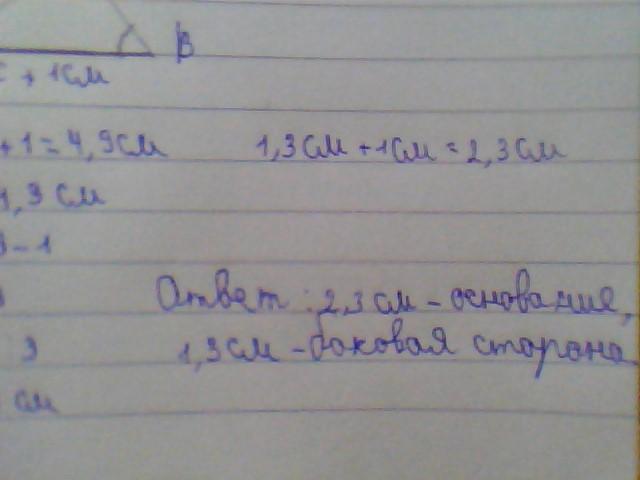 В
+ 1 см
+ 1 = 4,9 см 1,3 см + 1 см = 2,3 см
1,3 см
- 1
Ответ : 2,3 см - основание,
3 1,3 см - боковая сторона
см